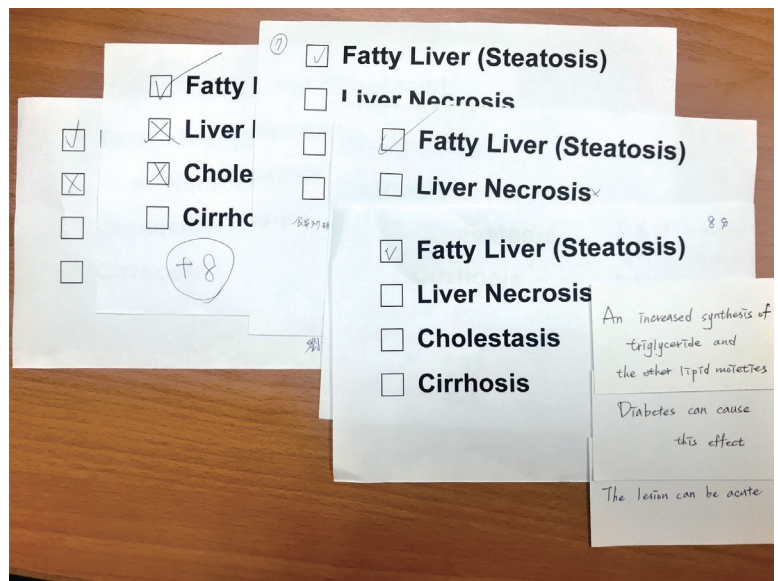 ⑦
Fatty Liver (Steatosis)
Liver Necrosis
Fatty
Liver
Chole
Cirrho
+8
Fatty Liver (Steatosis)
Liver Necrosis
8分
Fatty Liver (Steatosis)
Liver Necrosis
Cholestasis
Cirrhosis
An increased synthesis of
triglyceride and
the other lipid moieties
Diabetes can cause
this effect
The lesion can be acute